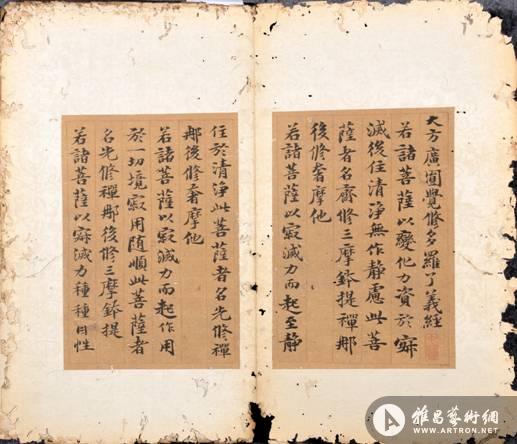 大方廣圓覺修多羅了義經
若諸菩薩以變化力資於寂
滅後住清淨無作靜慮此菩
薩者名齊修三摩鉢提禪那
後修奢摩他
若諸菩薩以寂滅力而起至静
住於清淨此菩薩者名先修禪
那後修奢摩他
若諸菩薩以寂滅力而起作用
於一切境寂用随順此菩薩者
名先修禪那後修三摩鉢提
若諸菩薩以寂滅力種種自性
雅昌藝術網
WWW.ARTRON.NET